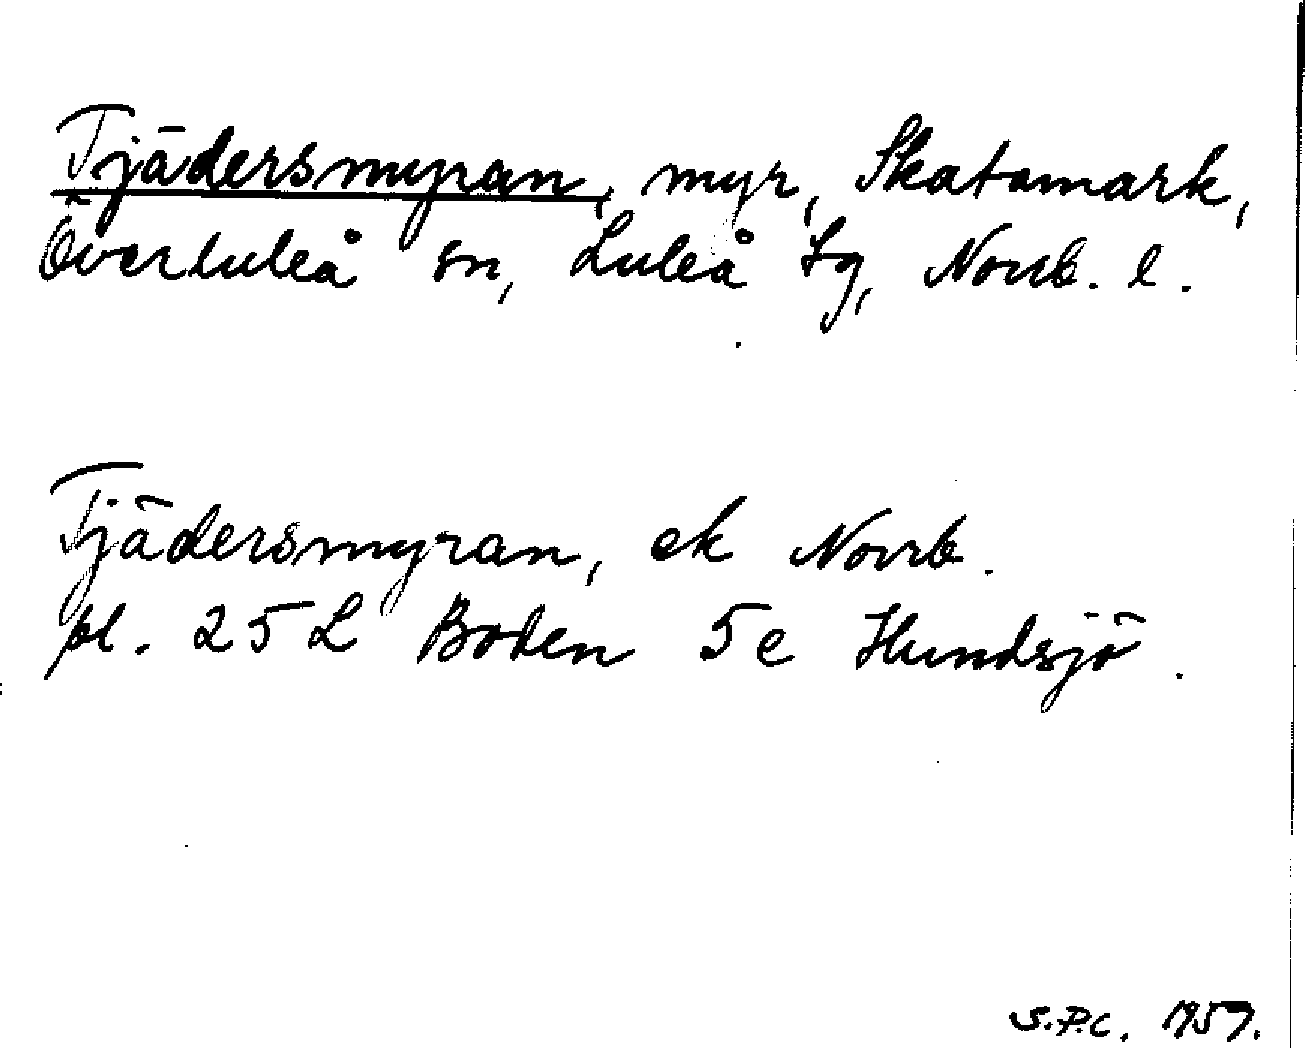 Tjädersmyran, myr, Skatamark,
Överluleå sn, Luleå tg, Norrb. l.
Tjädersmyran, ek Norrb.
bl. 25 L Boden 5e Hundsjö.
S.P.C. 1957.